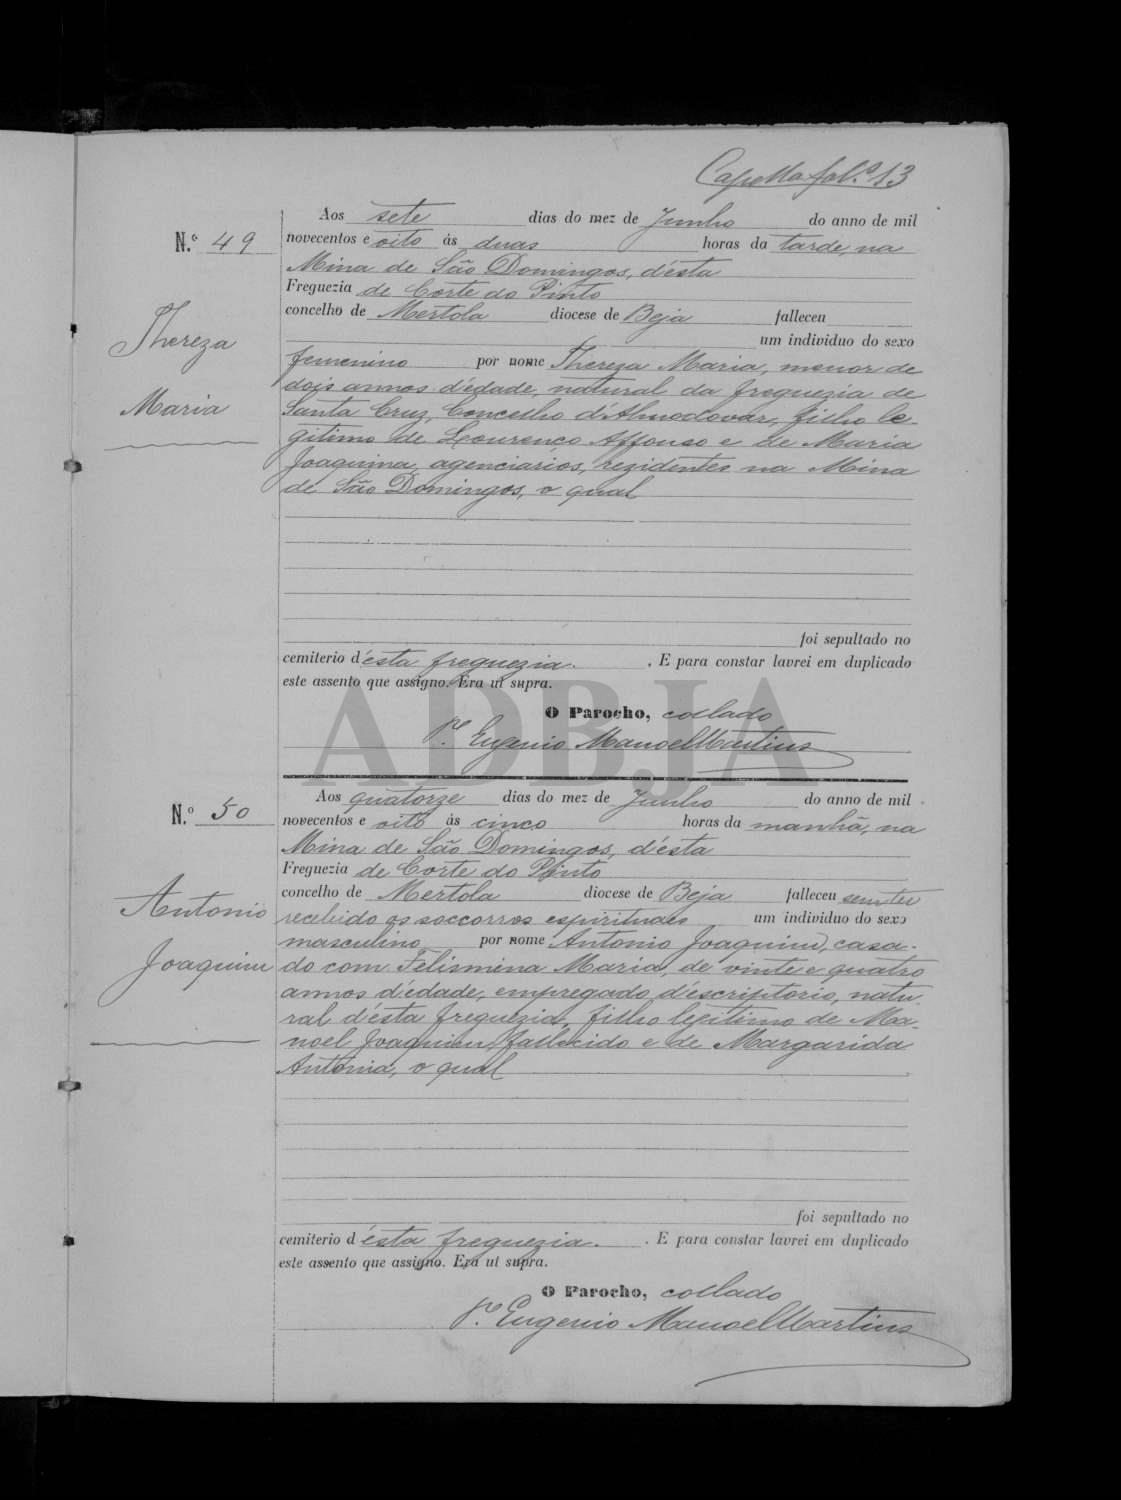 Capella fol.º 13
Aos sete dias do mez de Junho do anno de mil
N.º 49
novecentos e oito ás duas horas da tarde, na
Mina de São Domingos, d'ésta
Freguezia de Corte do Pinto
concelho de Mertola diocese de Beja falleceu
um individuo do sexo
Thereza
Maria
femenino por nome Thereza Maria, menor de
dois annos d'édade, natural da freguezia de
Santa Cruz, Concelho d'Almodovar, filho le-
gitimo de Lourenco Affonso e de Maria
Joaquina, agenciarios, rezidentes na Mina
de São Domingos, o qual
foi sepultado no
cemiterio d'ésta freguezia. . E para constar lavrei em duplicado
este assento que assigno. Era ut supra.
O Parocho, collado
P.e Eugenio Manoel Martins
ADBJA
Aos quatorze dias do mez de Junho do anno de mil
N.º 50
novecentos e oito ás cinco horas da manhã, na
Mina de São Domingos, d'ésta
Freguezia de Corte do Pinto
concelho de Mertola diocese de Beja falleceu sem ter
recebido os soccorros espirituaes um individuo do sexo
Antonio
Joaquim
masculino por nome Antonio Joaquim, casa-
do com Felismina Maria, de vinte e quatro
annos d'édade, empregado d'escriptorio, natu-
ral d'ésta freguezia, filho legitimo de Ma-
noel Joaquim, fallecido e de Margarida
Antonia, o qual
foi sepultado no
cemiterio d'ésta freguezia. . E para constar lavrei em duplicado
este assento que assigno. Era ut supra.
O Parocho, collado
P.e Eugenio Manoel Martins